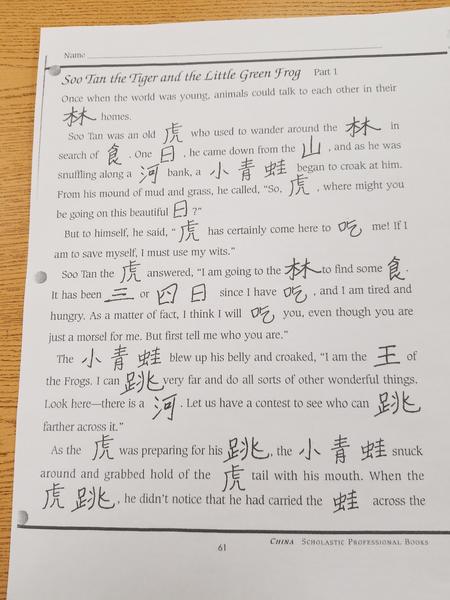 Name
Soo Tan the Tiger and the Little Green Frog Part 1
Once when the world was young, animals could talk to each other in their
林 homes.
Soo Tan was an old 虎 who used to wander around the 林 in
search of 食. One 日, he came down from the 山, and as he was
snuffling along a 河 bank, a 小青蛙 began to croak at him.
From his mound of mud and grass, he called, "So, 虎, where might you
be going on this beautiful 日?"
But to himself, he said, "虎 has certainly come here to 吃 me! If I
am to save myself, I must use my wits."
Soo Tan the 虎 answered, "I am going to the 林 to find some 食.
It has been 三 or 四日 since I have 吃, and I am tired and
hungry. As a matter of fact, I think I will 吃 you, even though you are
just a morsel for me. But first tell me who you are."
The 小青蛙 blew up his belly and croaked, "I am the 王 of
the Frogs. I can 跳 very far and do all sorts of other wonderful things.
Look here—there is a 河. Let us have a contest to see who can 跳
farther across it."
As the 虎 was preparing for his 跳, the 小青蛙 snuck
around and grabbed hold of the 虎 tail with his mouth. When the
虎跳, he didn't notice that he had carried the 蛙 across the
61
CHINA SCHOLASTIC PROFESSIONAL BOOKS